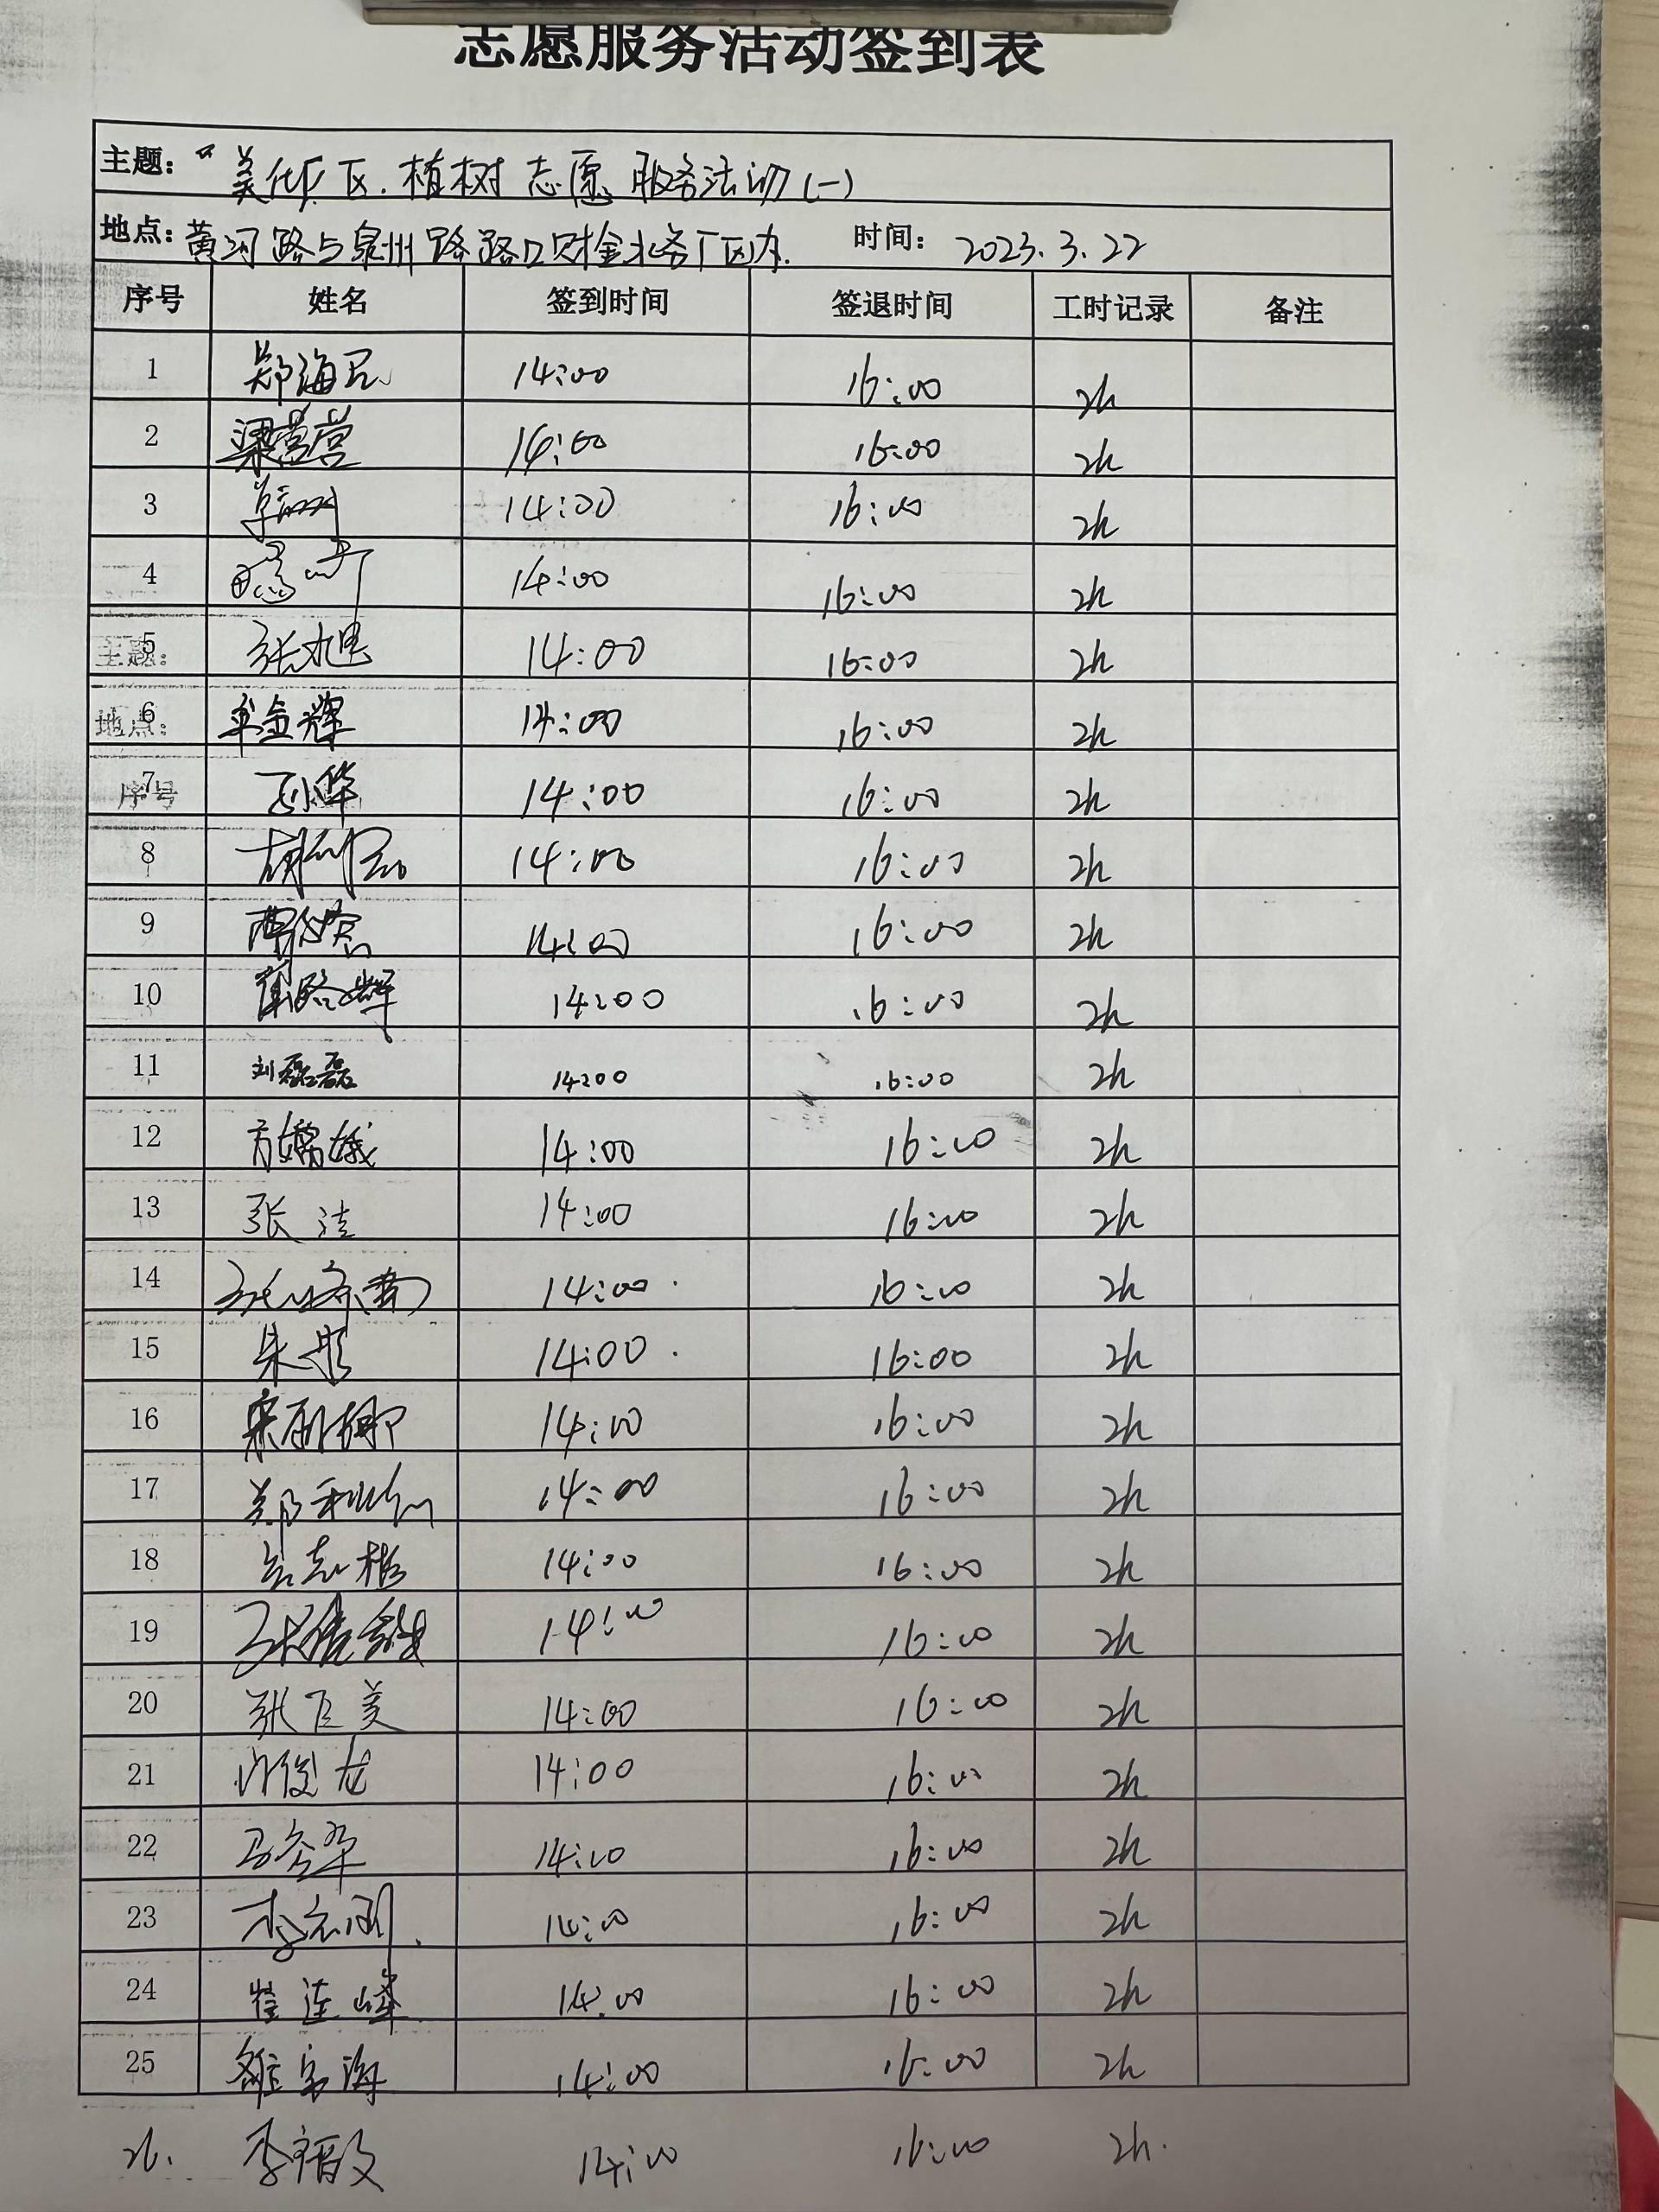 志愿服务活动签到表
主题：“美化厂区.植树志愿服务活动(一)
地点：黄河路与泉州路路口财金水务厂区内. 时间：2023.3.22
序号 姓名 签到时间 签退时间 工时记录 备注
1 郑海 14:00 16:00 2h
2 梁营营 14:00 16:00 2h
3 14:00 16:00 2h
4 14:00 16:00 2h
主题：
5 张旭 14:00 16:00 2h
地点：
6 金辉 14:00 16:00 2h
序号
7 华 14:00 16:00 2h
8 胡 14:00 16:00 2h
9 14:00 16:00 2h
10 路辉 14:00 16:00 2h
11 刘磊磊 14:00 16:00 2h
12 方嫦娥 14:00 16:00 2h
13 张洁 14:00 16:00 2h
14 14:00 16:00 2h
15 朱彤 14:00 16:00 2h
16 宋丽娜 14:00 16:00 2h
17 郑利 14:00 16:00 2h
18 志 14:00 16:00 2h
19 张 14:00 16:00 2h
20 张巨美 14:00 16:00 2h
21 俊龙 14:00 16:00 2h
22 14:00 16:00 2h
23 李 14:00 16:00 2h
24 崔连峰 14:00 16:00 2h
25 海 14:00 16:00 2h
26. 李文 14:00 16:00 2h.